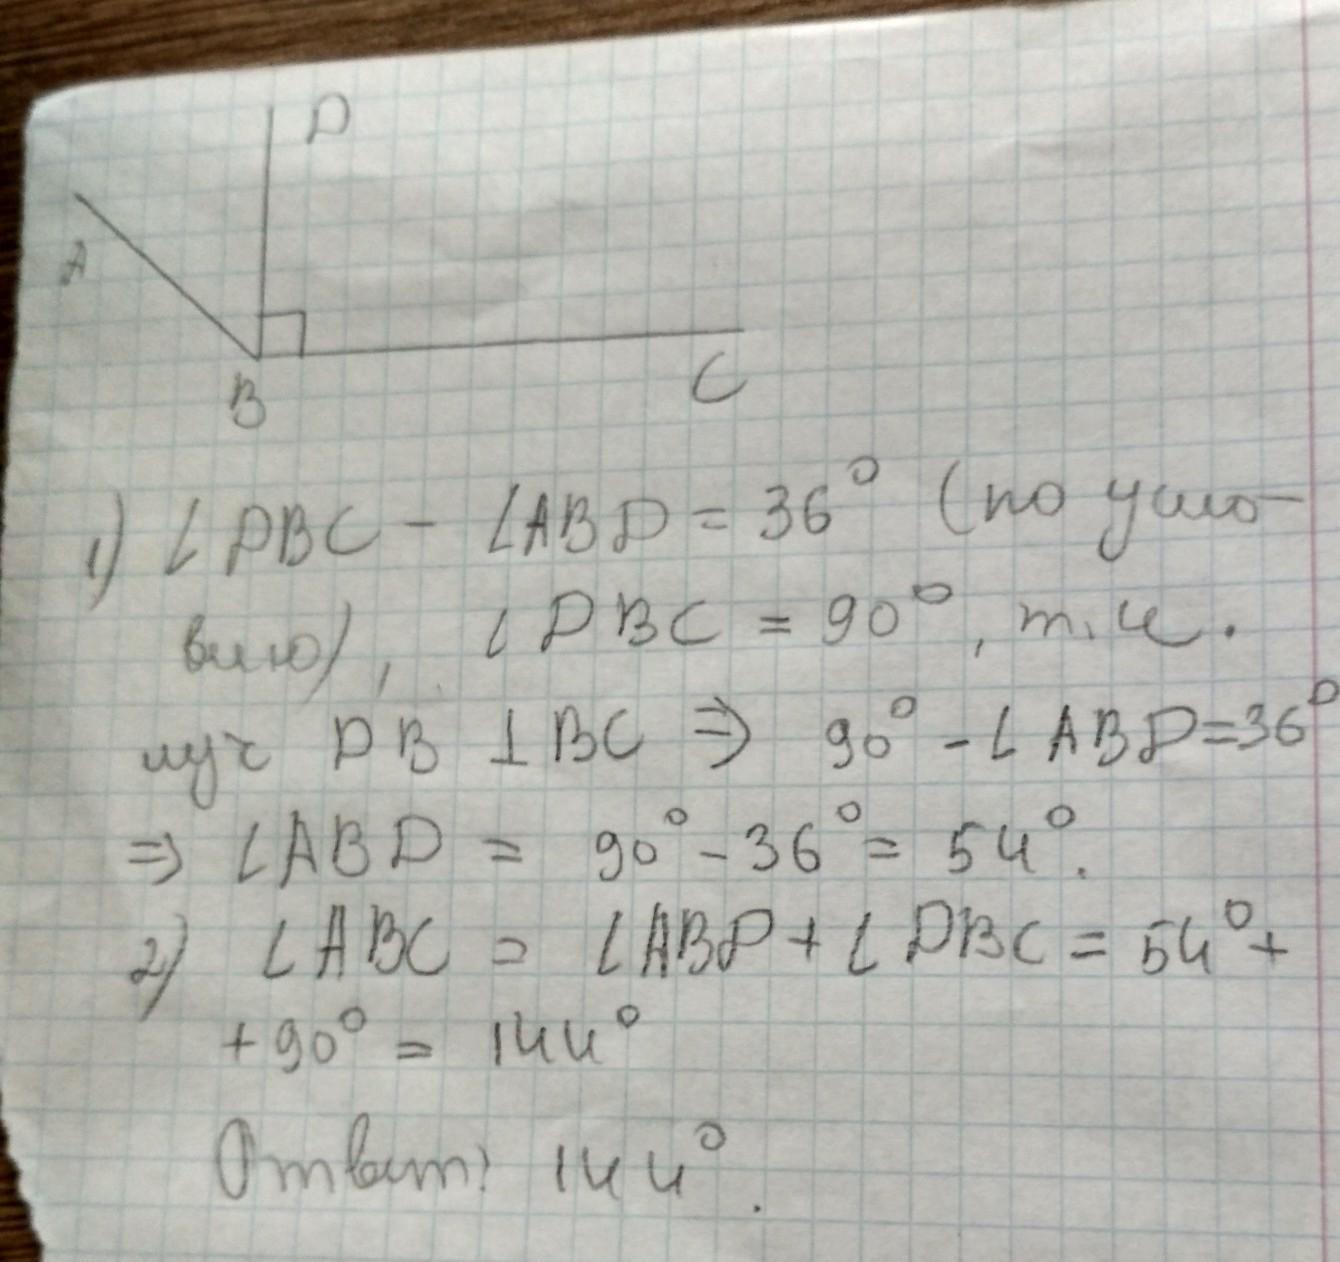 D
A
B
C
1) ∠DBC - ∠ABD = 36° (по усло-
вию), ∠DBC = 90°, т.к.
луч DB ⊥ BC ⇒ 90° - ∠ABD = 36°
⇒ ∠ABD = 90° - 36° = 54°.
2) ∠ABC = ∠ABD + ∠DBC = 54° +
+ 90° = 144°
Ответ: 144°.